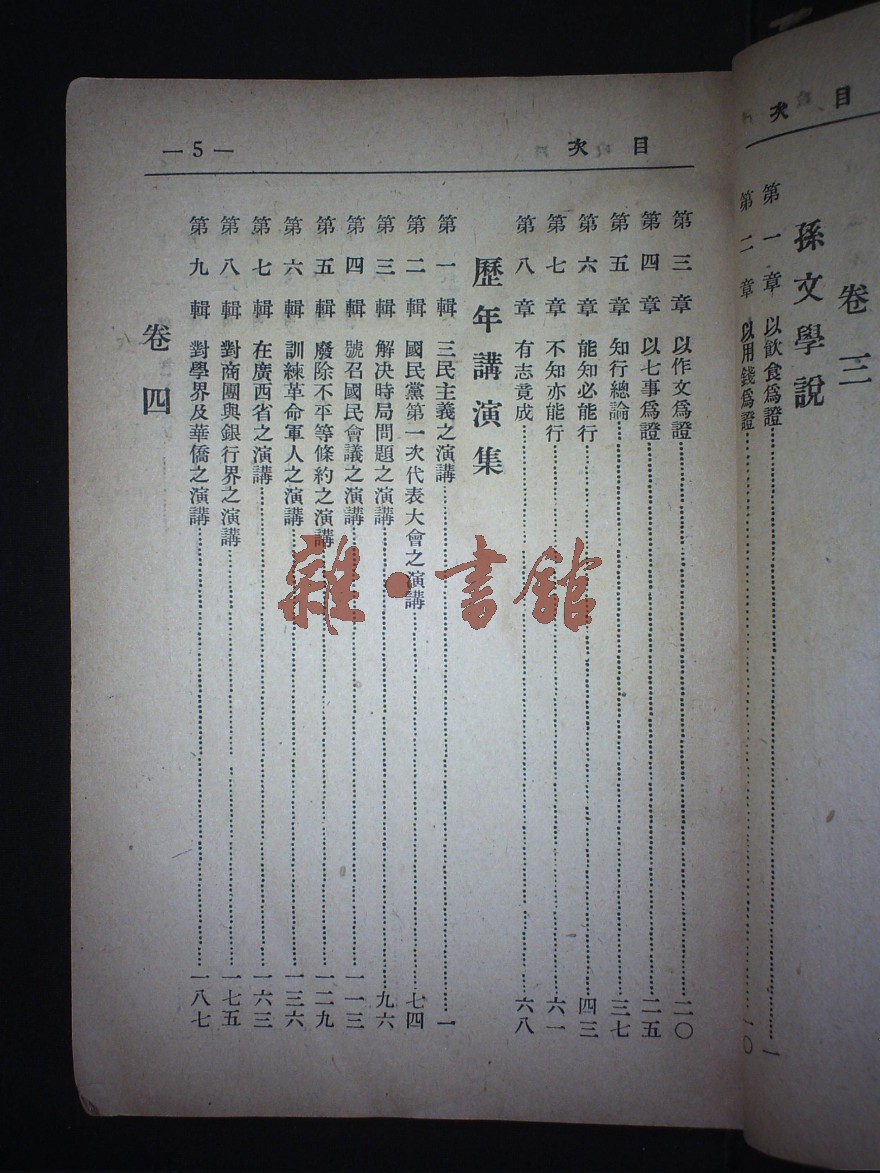 目次
卷三
孫文學說
第一章 以飲食爲證……一
第二章 以用錢爲證……一〇
目次 —5—
第三章 以作文爲證……二〇
第四章 以七事爲證……二五
第五章 知行總論……三七
第六章 能知必能行……四三
第七章 不知亦能行……六一
第八章 有志竟成……六八
歷年講演集
第一輯 三民主義之演講……一
第二輯 國民黨第一次代表大會之演講……七四
第三輯 解決時局問題之演講……九六
第四輯 號召國民會議之演講……一一三
第五輯 廢除不平等條約之演講……一二九
第六輯 訓練革命軍人之演講……一三六
第七輯 在廣西省之演講……一六三
第八輯 對商團與銀行界之演講……一七五
第九輯 對學界及華僑之演講……一八七
卷四
雜·書館